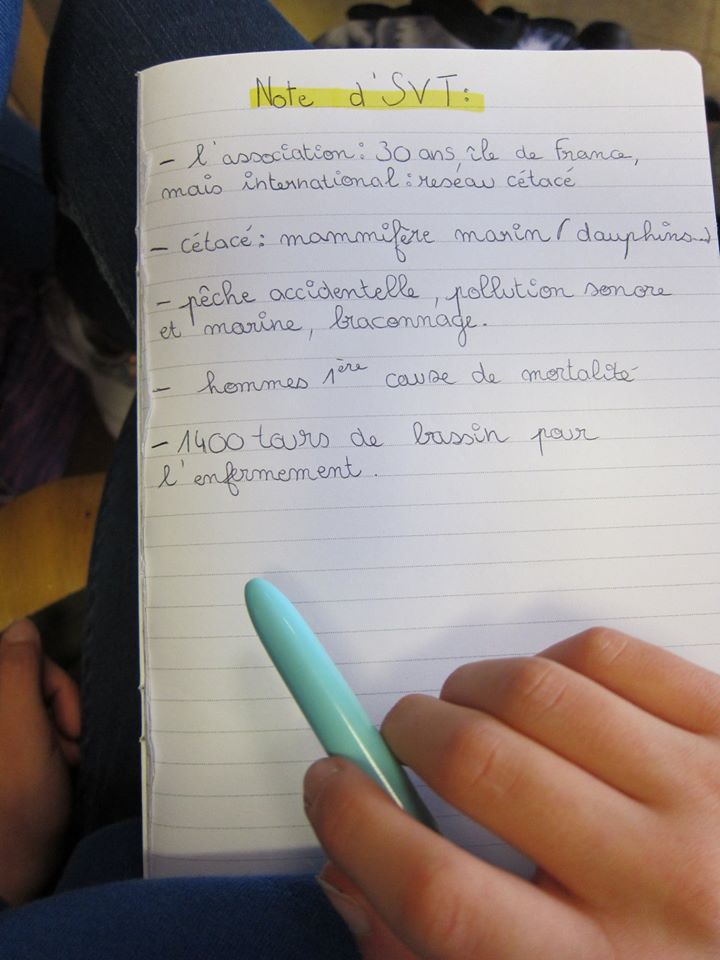 Note d'SVT:
- l'association: 30 ans île de France,
mais international: reséau cétacé
- cétacé: mammifère marin (dauphins...)
- pêche accidentelle, pollution sonore
et marine, braconnage.
- hommes 1ère cause de mortalité
- 1400 tours de bassin pour
l'enfermement.